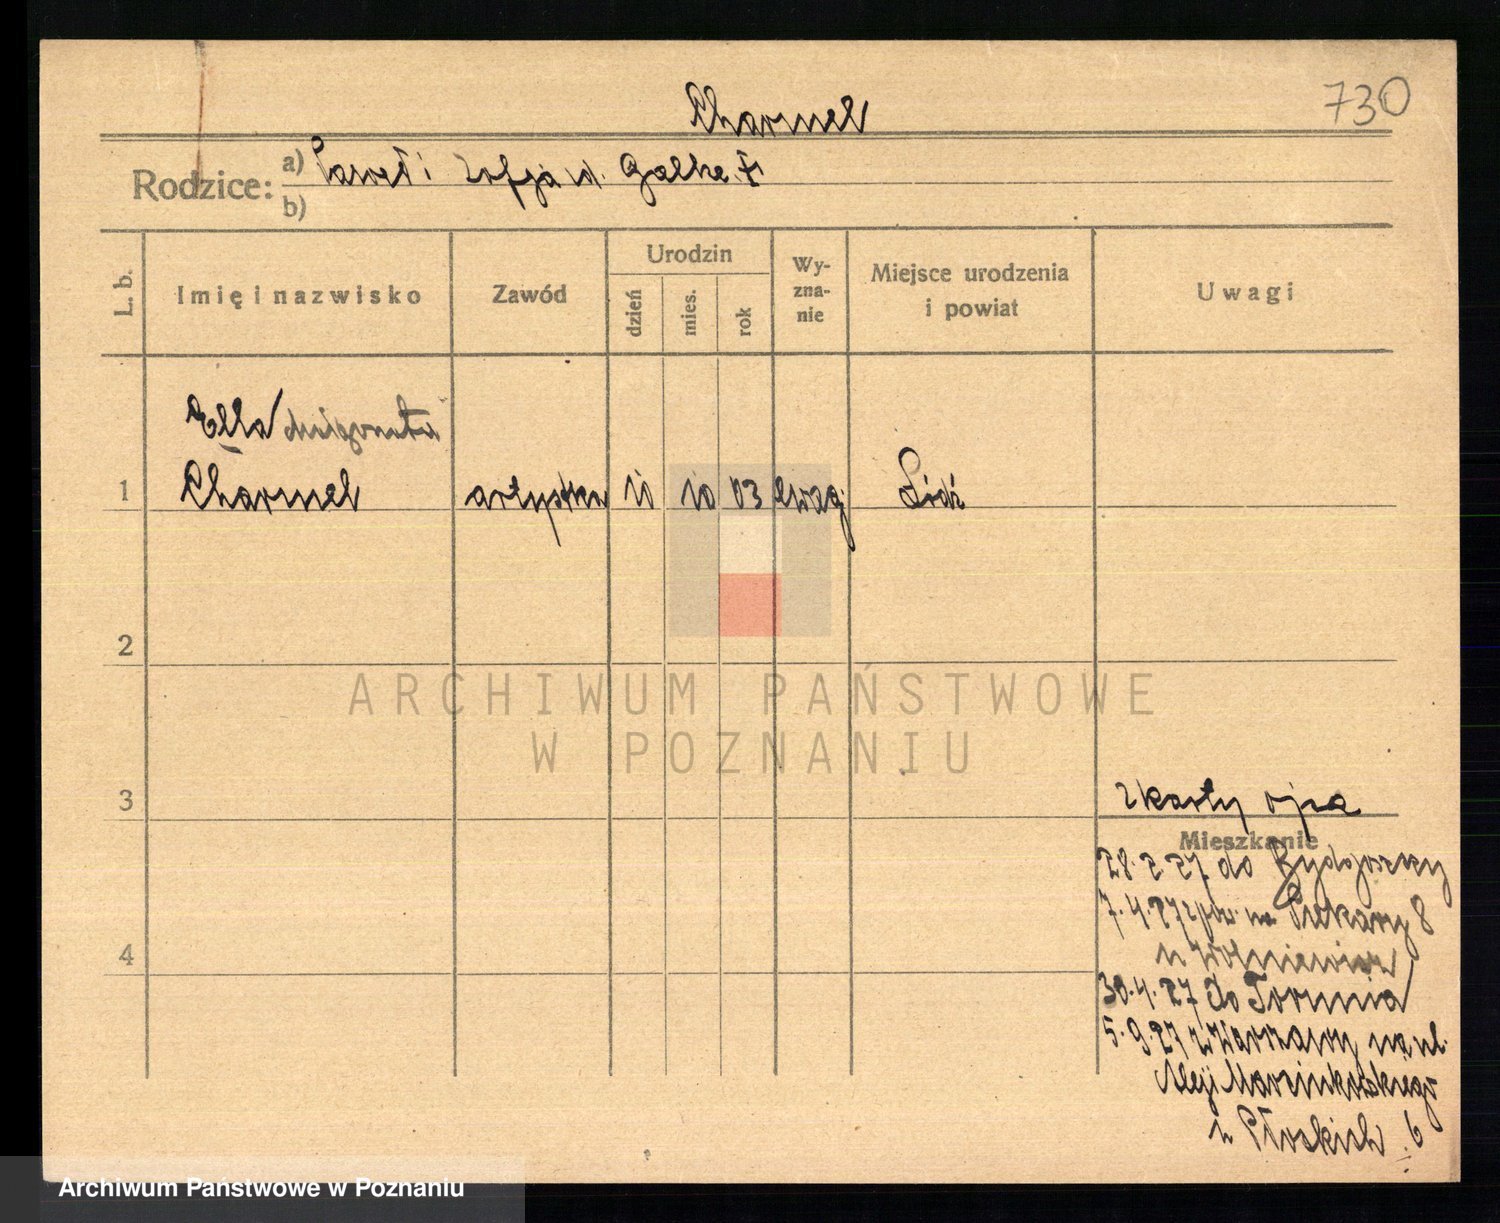 730
Charmel
Rodzice: a) Paweł i Zofja d. Galke
b)
L. b.
Imię i nazwisko
Zawód
Urodzin
dzień
mies.
rok
Wy-
zna-
nie
Miejsce urodzenia
i powiat
Uwagi
Ella
1 Charmel artystka 10 10 03 ewag Łódź
2
ARCHIWUM PAŃSTWOWE
W POZNANIU
3
z karty ojca
Mieszkanie
28.2.27 do Bydgoszczy
7.4.27 na Piekary 8
4
30.4.27 do Torunia
5.9.27 z Warszawy na ul.
Aleji Marcinkowskiego
u Płoskich 6
Archiwum Państwowe w Poznaniu